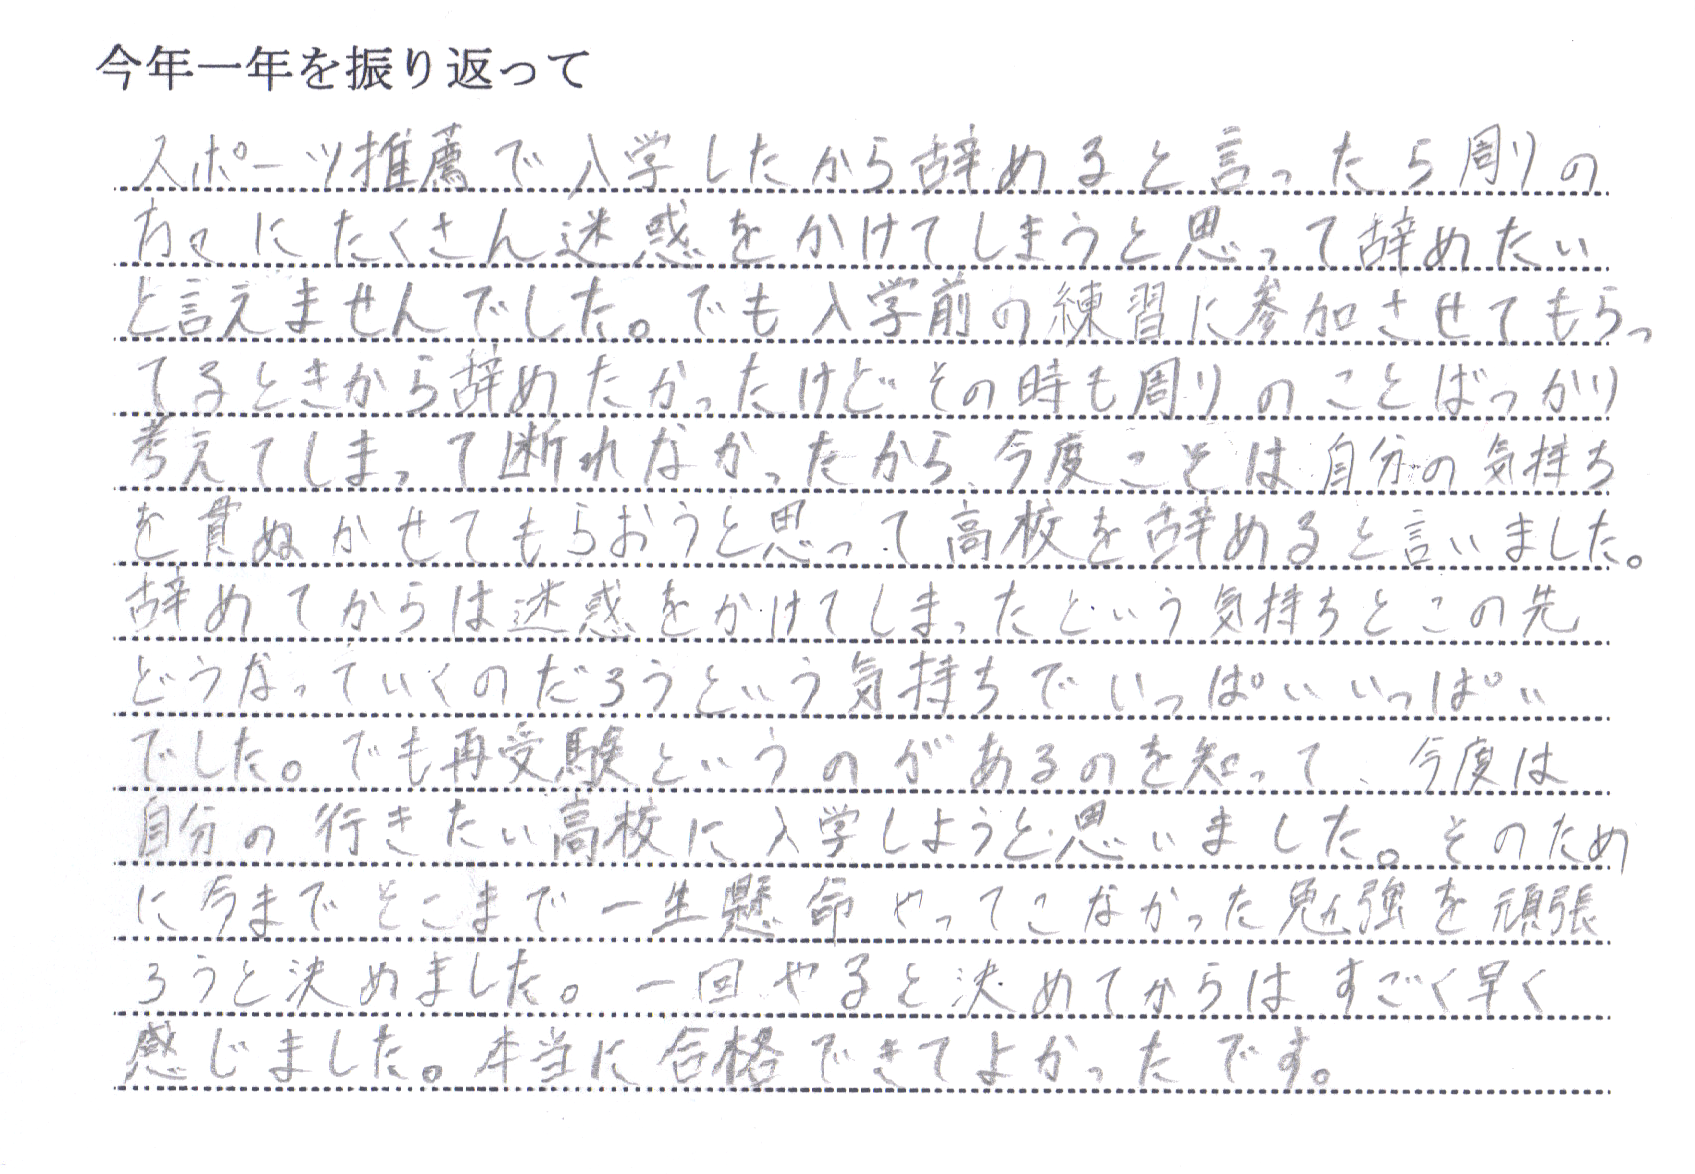 今年一年を振り返って
スポーツ推薦で入学したから辞めると言ったら周りの
方々にたくさん迷惑をかけてしまうと思って辞めたい
と言えませんでした。でも入学前の練習に参加させてもらっ
てるときから辞めたかったけどその時も周りのことばっかり
考えてしまって断れなかったから、今度こそは自分の気持ち
を貫ぬかせてもらおうと思って高校を辞めると言いました。
辞めてからは迷惑をかけてしまったという気持ちとこの先
どうなっていくのだろうという気持ちでいっぱいいっぱい
でした。でも再受験というのがあるのを知って、今度は
自分の行きたい高校に入学しようと思いました。そのため
に今までそこまで一生懸命やってこなかった勉強を頑張
ろうと決めました。一回やると決めてからはすごく早く
感じました。本当に合格できてよかったです。